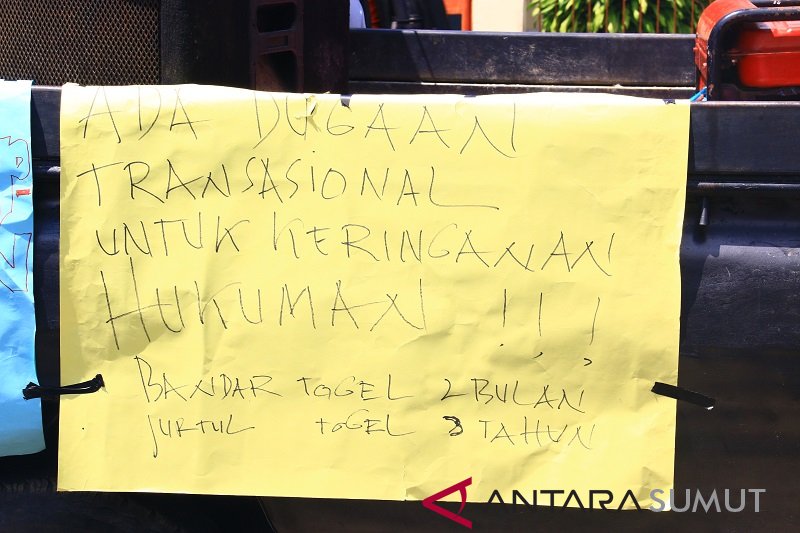 ADA DUGAAN
TRANSASIONAL
UNTUK KERINGANAN
HUKUMAN !!!
BANDAR TOGEL 2 BULAN
JURTUL TOGEL 3 TAHUN
ANTARASUMUT